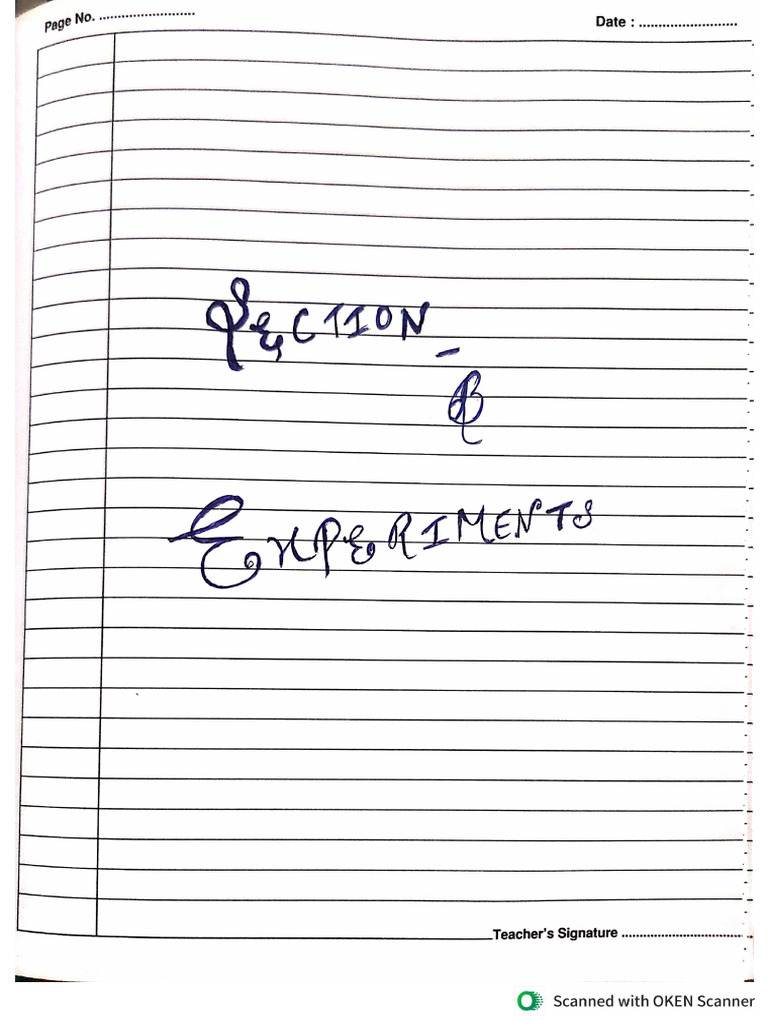 Page No. ............................ Date : ............................
SECTION
- B
EXPERIMENTS
Teacher's Signature ..................................
Scanned with OKEN Scanner